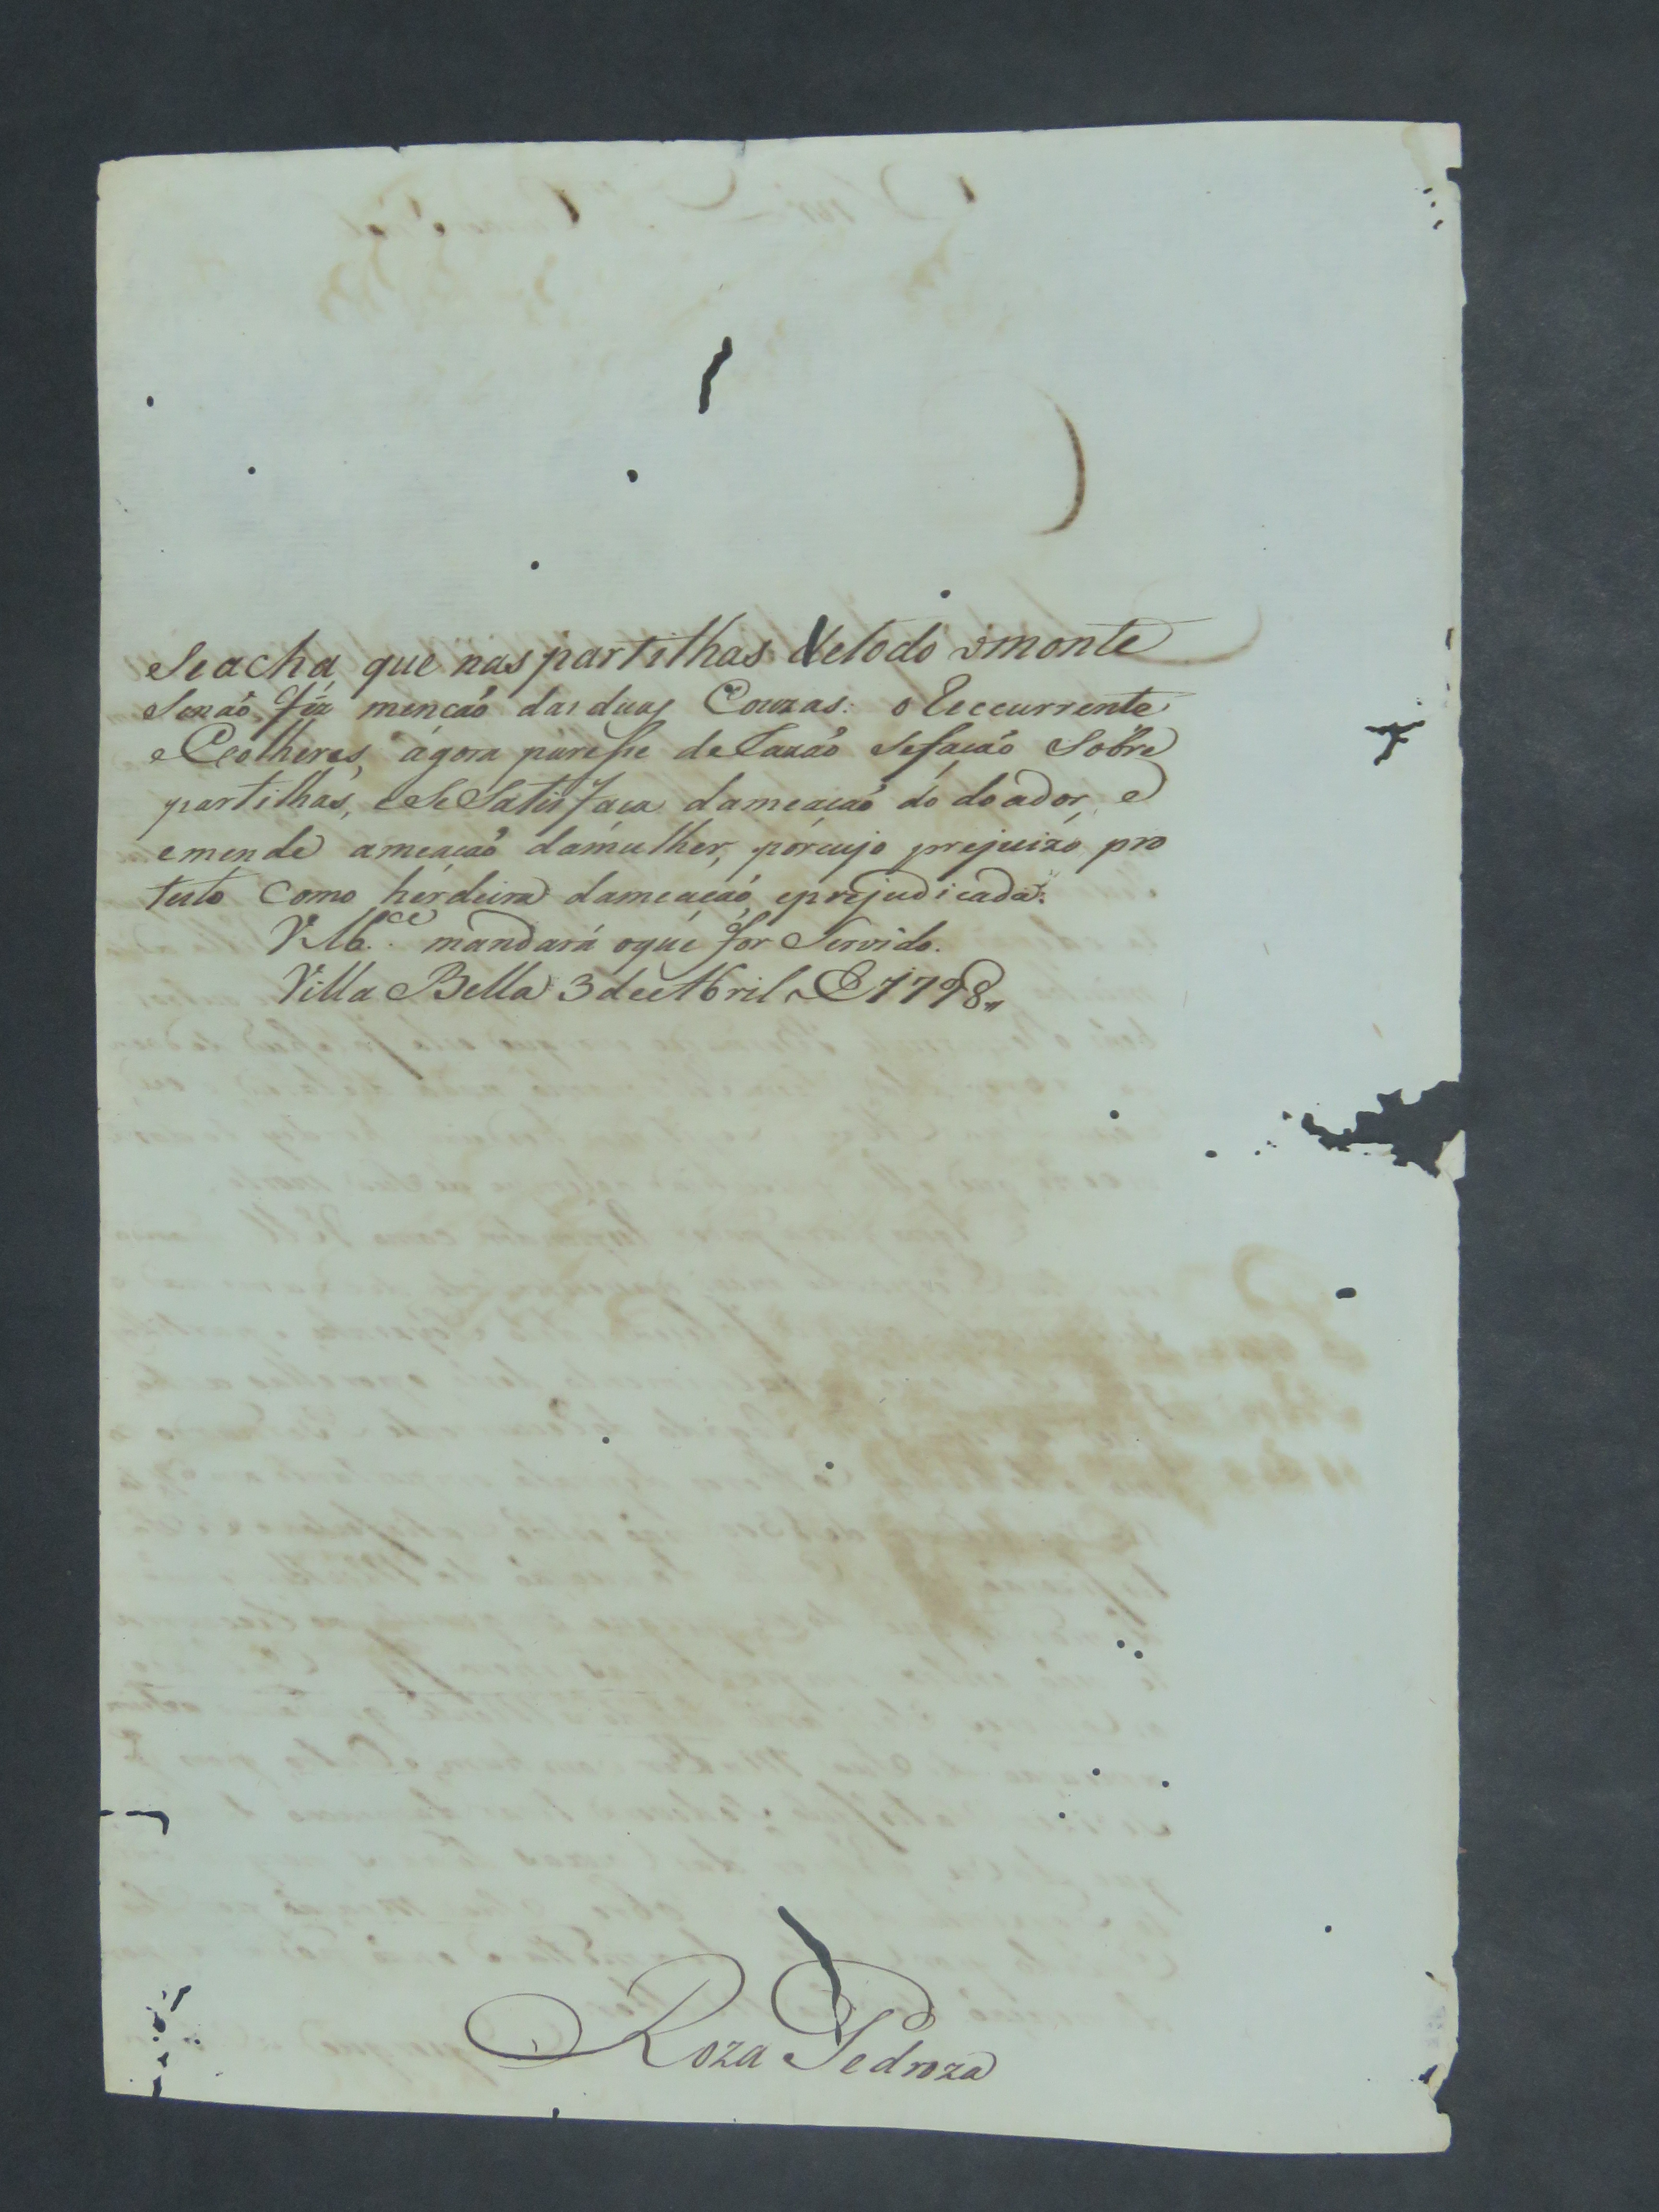 Se acha que nas partilhas detodo omonte
Senaõ féz mencaõ das duas Couzas: o Reccurrente
eColheres, ágora paresse deRazaõ Sefacaõ Sobre
partilhas, eSeSatisfaca dameacaõ do doador, e
emende ameacaõ damulher, pórcujo prejuizo pro
testo como hérdeira dameacaõ, eprejudicada.
VM.ce mandará oque for Servido.
Villa Bella 3 de Abril de 1798,,
Roza Pedroza